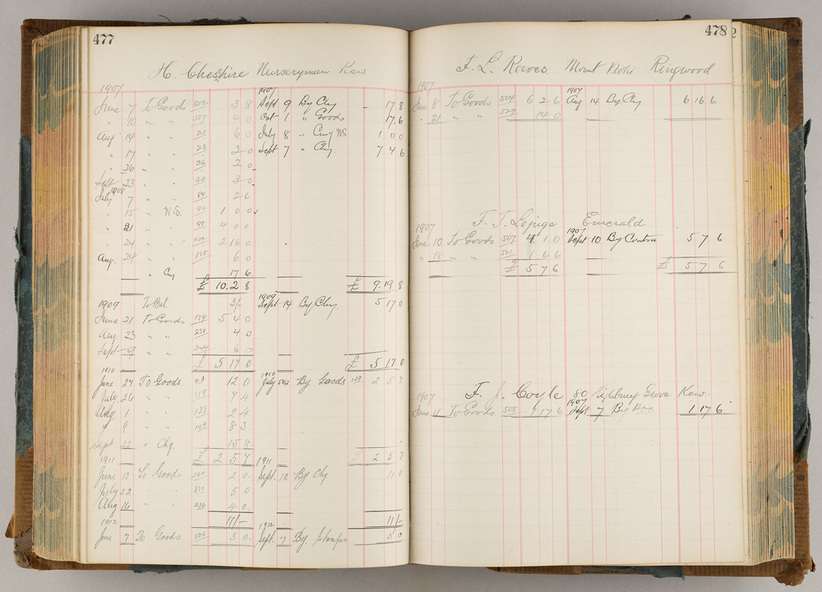 477
H. Cheshire Nurseryman Kew
1907 1907
June 7 To Goods 3 8 Sept 9 By Chq 17 8
" 10 " " 4 0 Oct 1 " Goods 17 6
Aug 14 " " 6 0 July 8 " 1 0 0
" 17 " " 2 0 Sept 7 " Chq 7 4 6
" 26 " " 2 0
Sept 23 " " 3 0
1908
July 7 " " 2 6
" 15 " N.S. 1 0 0
" 21 " " 4 0 0
" 24 " " 2 16 0
Aug 24 " " 6 0
" Chq 17 6
£ 10 2 8 £ 9 19 8
1909 To Bal 3/- 1909 Sept 14 By Chq 5 17 0
June 21 To Goods 179 5 4 0
Aug 23 " " 4 0
Sept 9 " " 6 0
£ 5 17 0 £ 5 17 0
1910 1910
June 24 To Goods 12 0 July By Goods 2 5 7
July 26 " " 7 4
Aug 1 " " 2 4
" 9 " " 8 3
Sept 22 " Chq 15 8
£ 2 5 7 £ 2 5 7
1911 1911
June 12 To Goods 2 0 Sept. 12 By Chq 11 0
July 22 " " 5 0
Aug 16 " " 4 0
11/- 11/-
1912 1912
June 9 To Goods 5 0 Sept. 7 By Stamps 5 0
478
F. L. Reeves Mount Ringwood
1907 1907
June 8 To Goods 504 6 2 6 Aug 14 By Chq 6 16 6
" 21 " " 14 0
F. T. Emerald
1907 1907
June 10 To Goods 507 4 1 0 Sept 10 By Contra 5 7 6
" 18 " " 1 6 6
£ 5 7 6 £ 5 7 6
F. J. Coyle 80 Highbury Grove Kew
1907 1907
June 11 To Goods 505 1 17 6 Sept 7 By 1 17 6